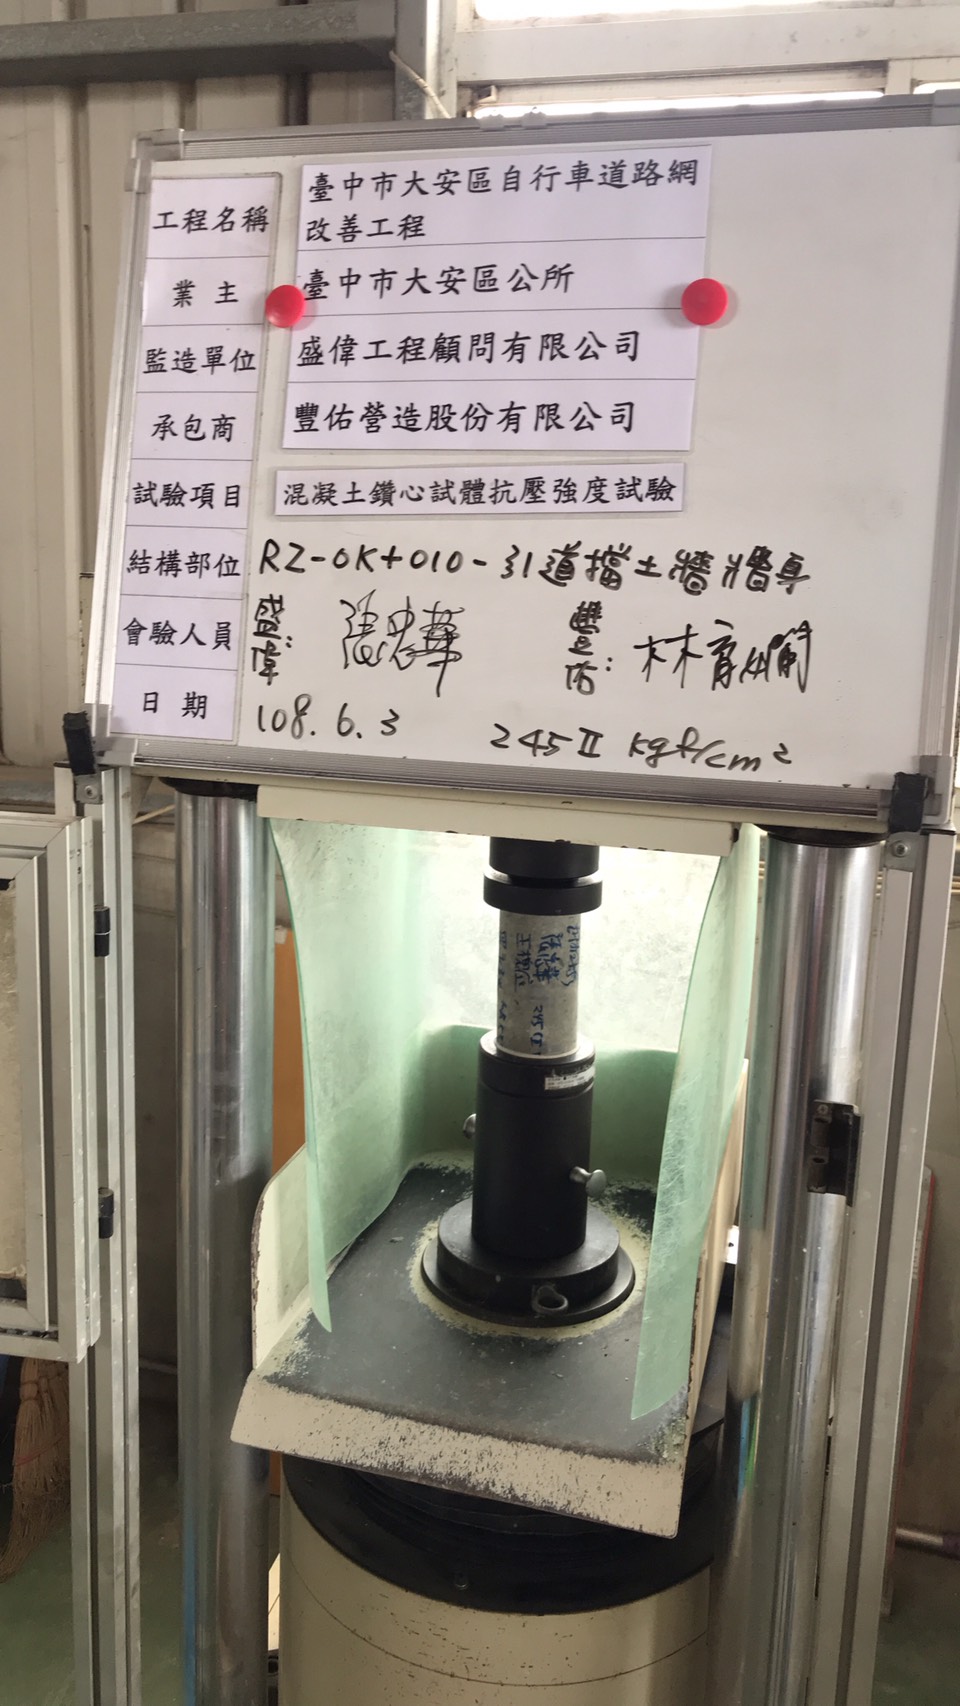 工程名稱 臺中市大安區自行車道路網
改善工程
業主 臺中市大安區公所
監造單位 盛偉工程顧問有限公司
承包商 豐佑營造股份有限公司
試驗項目 混凝土鑽心試體抗壓強度試驗
結構部位 RZ-0K+010-引道擋土牆牆身
會驗人員 盛偉: 豐佑: 林
日期 108.6.3 245Ⅱ kgf/cm²